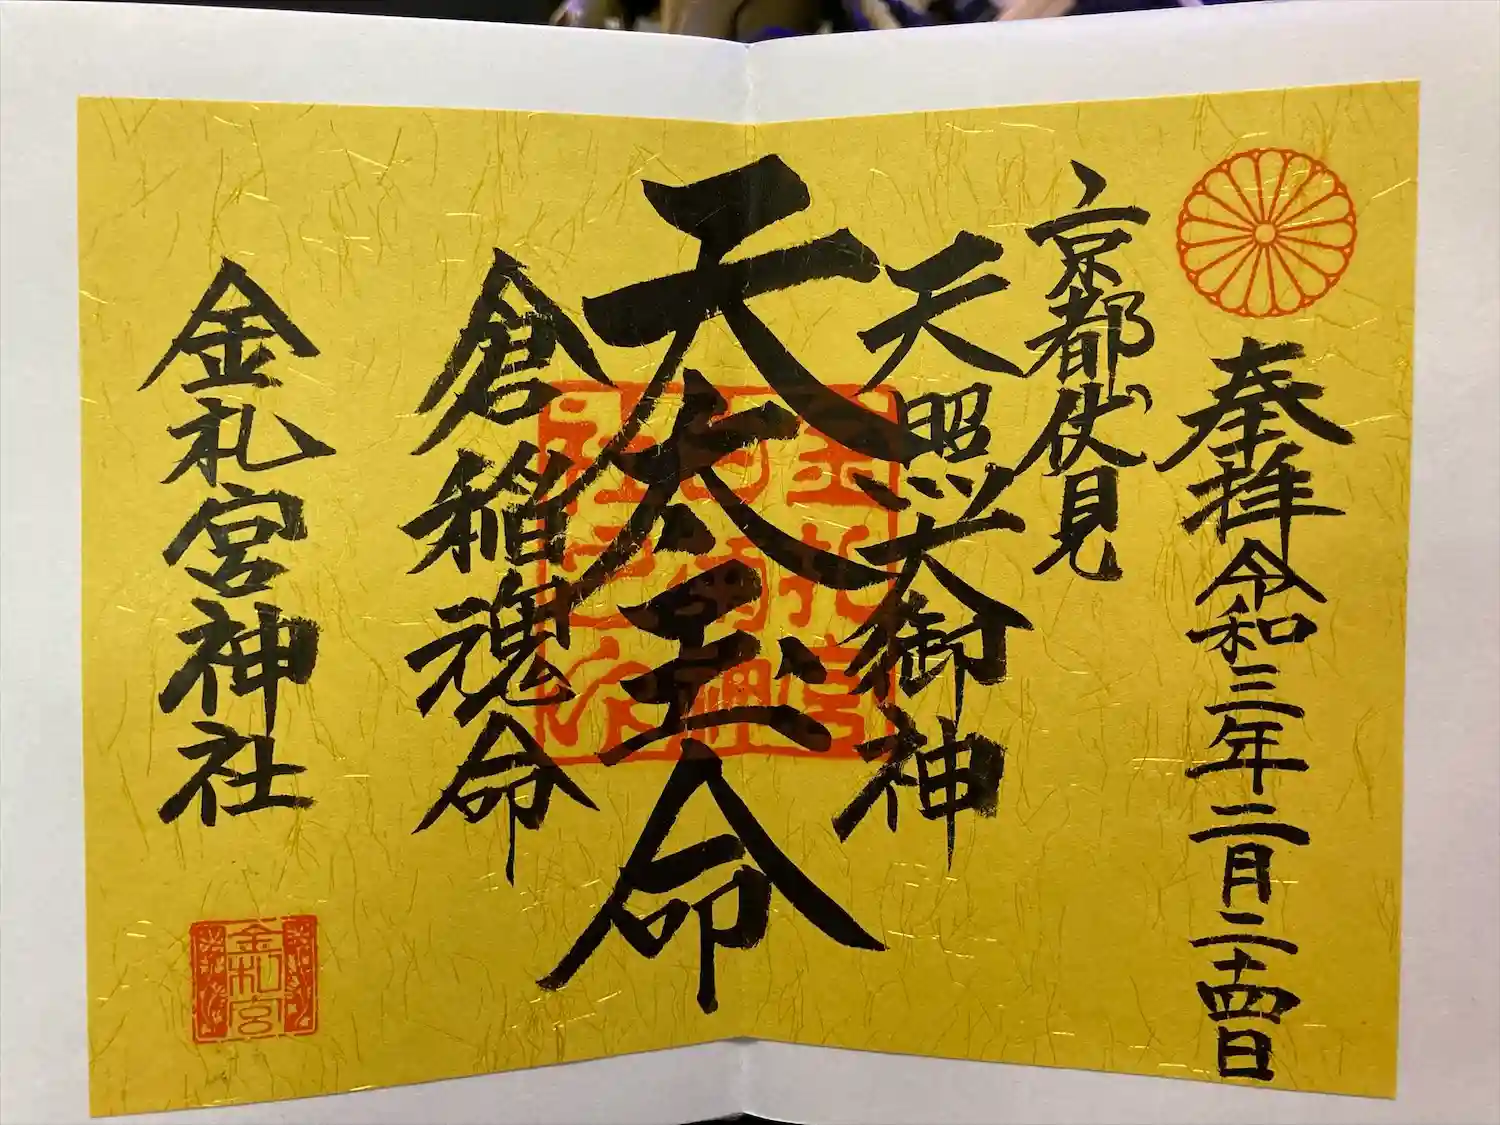 奉拝 令和三年二月二十四日
京都伏見
天照大御神
天太玉命
倉稲魂命
金札宮神社